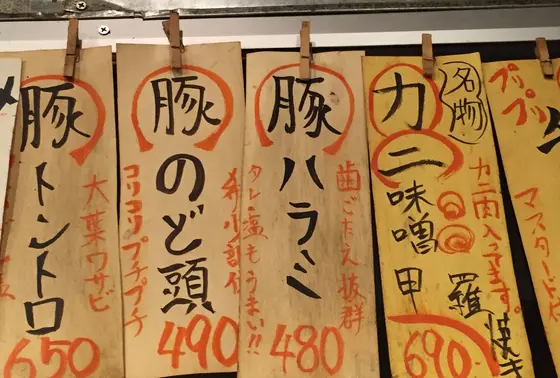 豚トントロ
大葉ワサビ
650
豚のど頭
コリコリプチプチ
希少部位
490
豚ハラミ
歯ごたえ抜群
タレ・塩もうまい!!
480
名物
カニ味噌甲羅焼き
カニ肉入ってます。
690
プリプリ
マスター